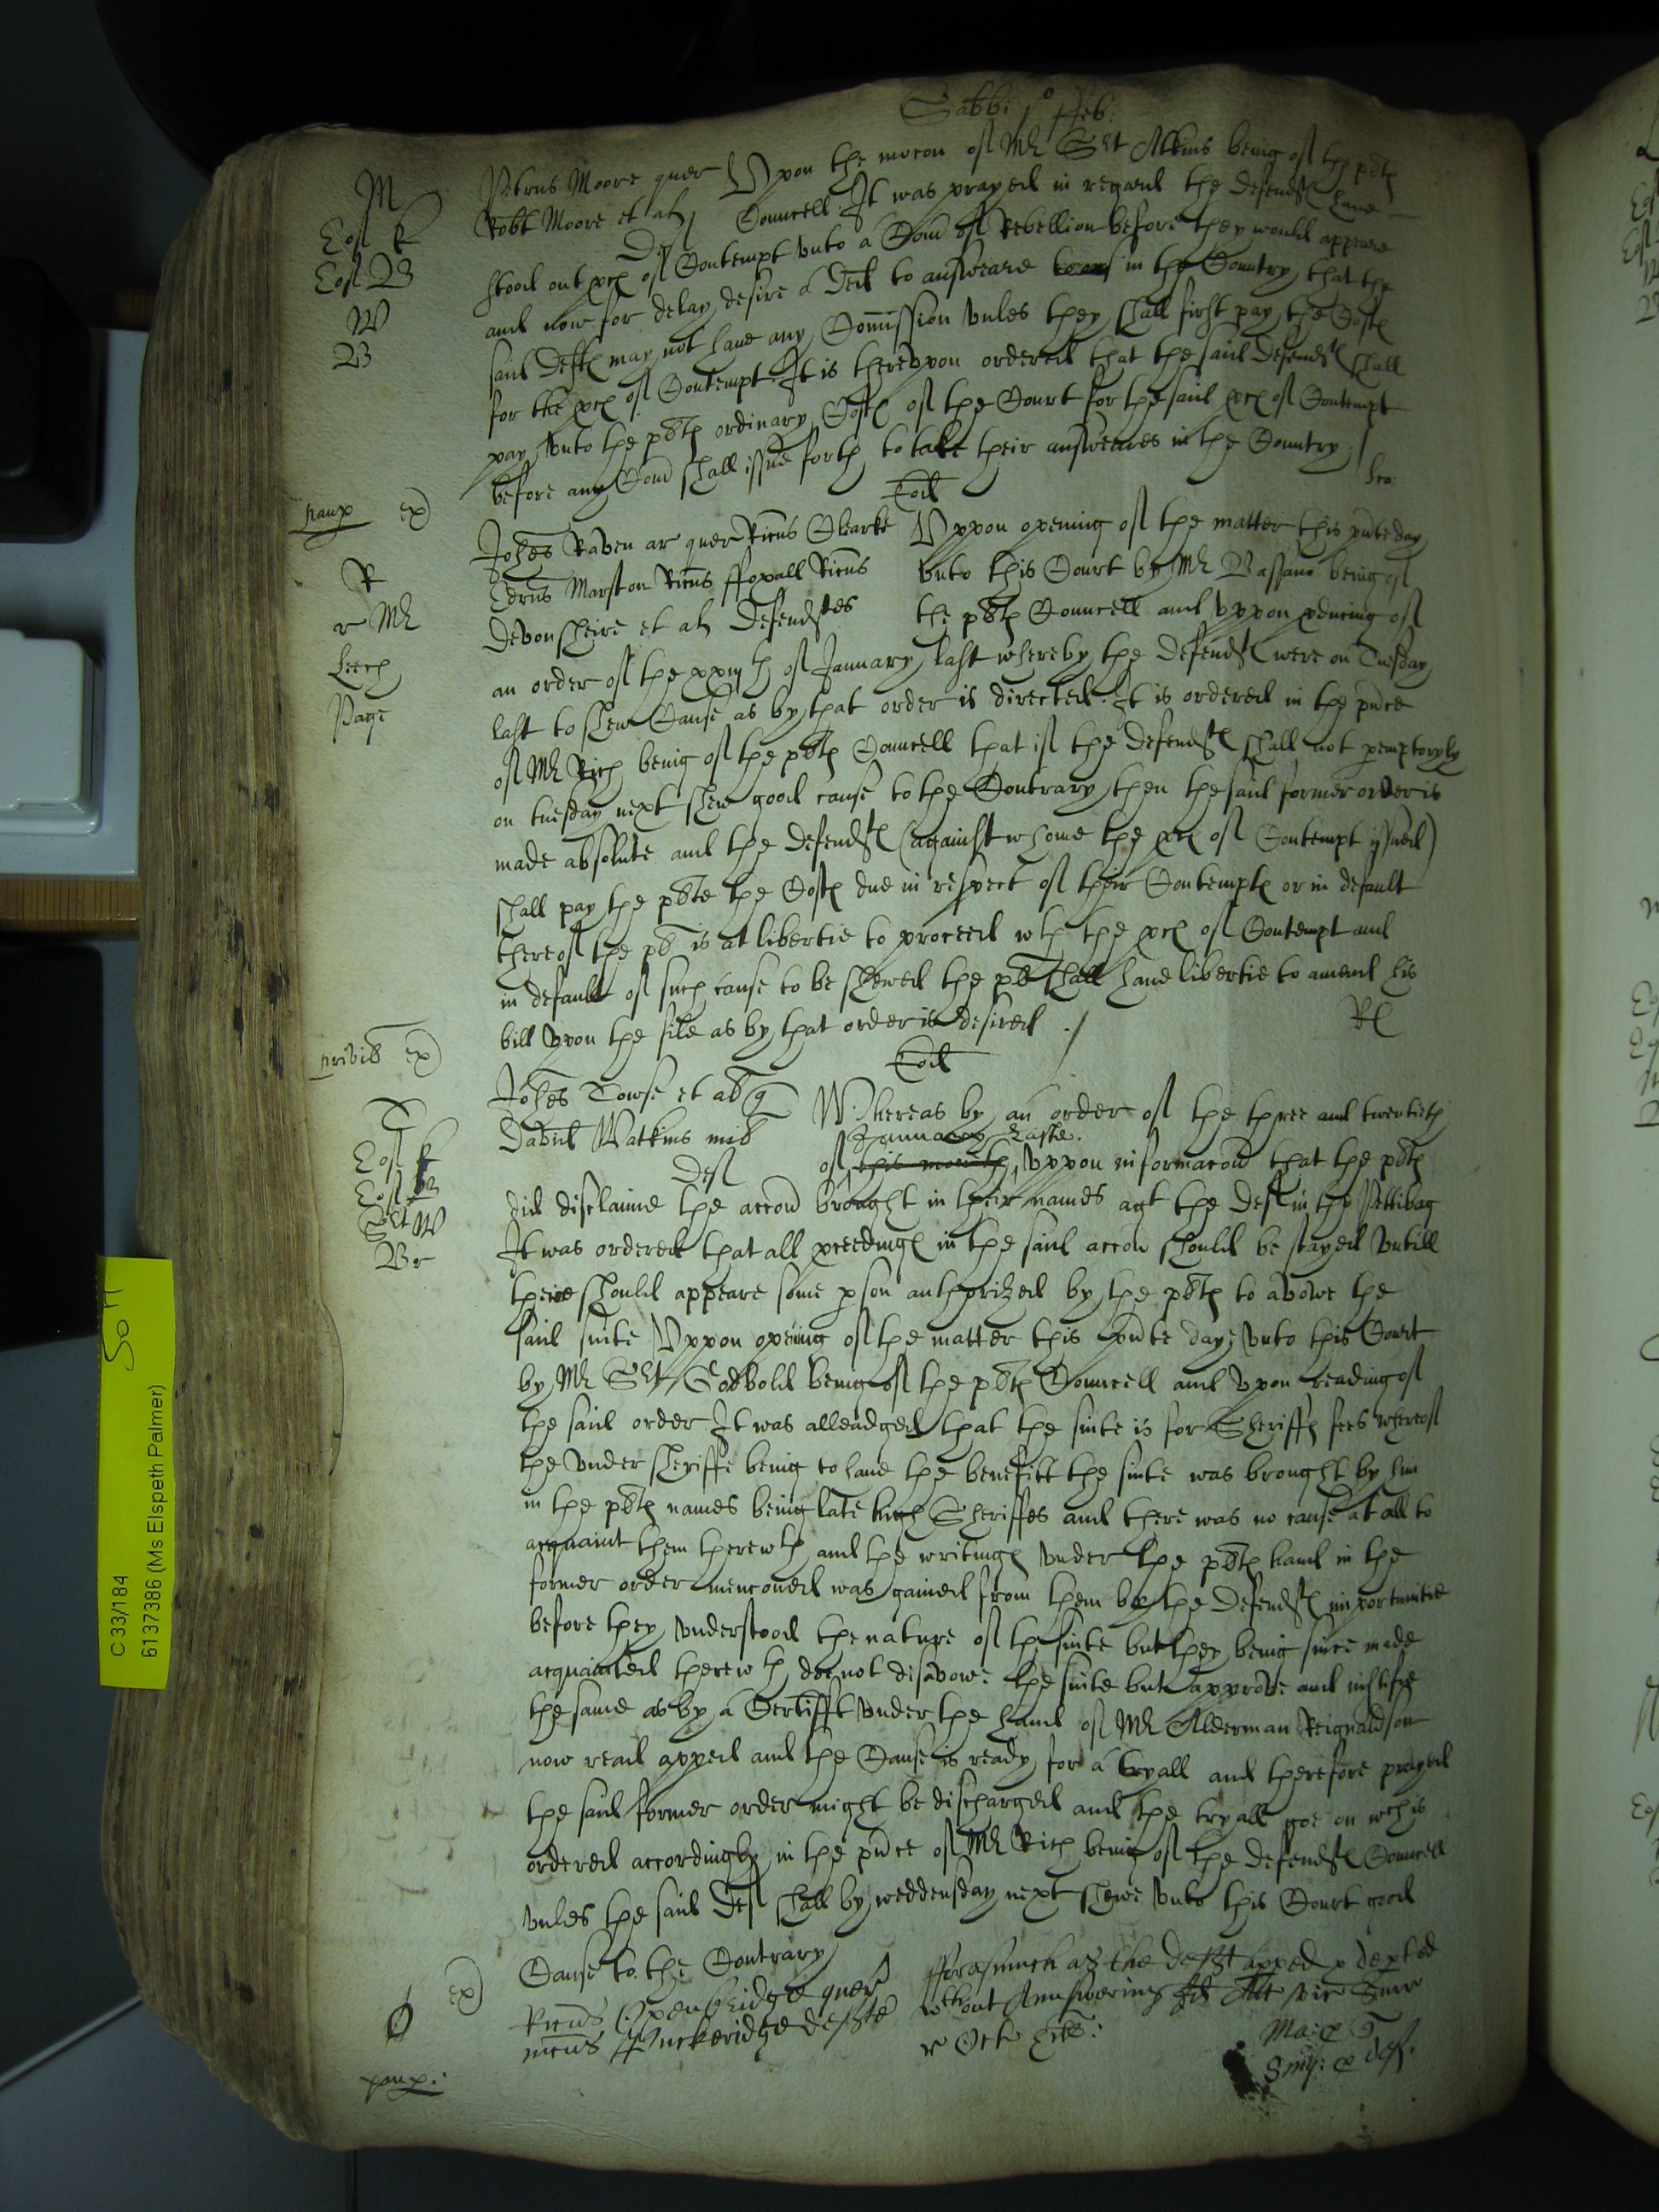 Sabbi 1o ffeb:
M
Petrus Moore quer Upon the mocon of Mr Sert Atkins being of the plts
Eos f
Robt Moore et als Councell. It was prayed in regard the defendts have
Deft
Eos B
stood out pces of Contempt unto a Com of Rebellion before they would appeare
W
and now for delay desire a Ded to answeare in the Country that the
B
said Defts may not have any Comission unles they shall first pay the Costs
for the pces of Contempt. It is thereupon ordered that the said defendts shall
pay unto the plts ordinary Costs of the Court for the said pces of Contempt
before any Com shall issue forth to take their answeares in the Country /
paup ex)
Eod
R
Johes Raven ar quer Ricus Clarke Uppon opening of the matter this pnte day
r Mr
Edrus Marston Ricus ffoxall Ricus unto this Court by Mr Bassano being of
Leech
Devonsheire et als Defendtes the plts Councell and uppon pducing of
Page
an order of the xxiijth of January last whereby the defendts were on Tuesday
last to shew Cause as by that order is directed. It is ordered in the pnce
of Mr Rich being of the plts Councell that if the defendts shall not pemptoryly
on tuesday next shew good cause to the Contrary then the said former order is
made absolute and the defendts (against whome the pces of Contempt yssued)
shall pay the plte the Costs due in respect of their Contempts or in default
thereof the pl is at libertie to proceed wth the pces of Contempt and
in default of such cause to be shewed the pl shall have libertie to amend his
bill upon the file as by that order is desired ./
Rl
privil ex)
Eod
T
Johes Towse et al q Whereas by an order of the three and twentieth
Eos f
David Watkins mil of this moneth January Laste. uppon informacon that the plts
Deft
Eos B
did disclaime the accon brought in their names agt the Deft in the Pettibag
Sert W
It was ordered that all pceedings in the said accon should be stayed untill
Br
there should appeare some pson authorized by the plts to avowe the
said suite Uppon opening of the matter this pnte day unto this Court
by Mr Sert Godbold being of the plts Councell and upon reading of
the said order It was alleadged that the suite is for Sheriffs fees whereof
the under sheriffe being to have the benefitt the suite was brought by him
in the plts names being late high Sheriffes and there was no cause at all to
acquaint them therewth and the writings under the plts hand in the
former order menconed was gained from them by the Defendts importunitie
before they understood the nature of the suite but they being since made
acquainted therewth doe not disavowe the suite but approve and iustifye
the same as by a Certifft under the hand of Mr Alderman Reignaldson
now read apped and the Cause is ready for a tryall and therefore prayed
the said former order might be discharged and the tryall goe on wch is
ordered accordingly in the pnce of Mr Rich being of the defendts Councell
unles the said Deft shall by weddensday next shewe unto this Court good
Cause to the Contrary
ex)
Ricus quer fforasmuch as the defte apped & depted
Puckeridge defte wthout Answering
paup:
C 33/184
6137386 (Ms Elspeth Palmer)